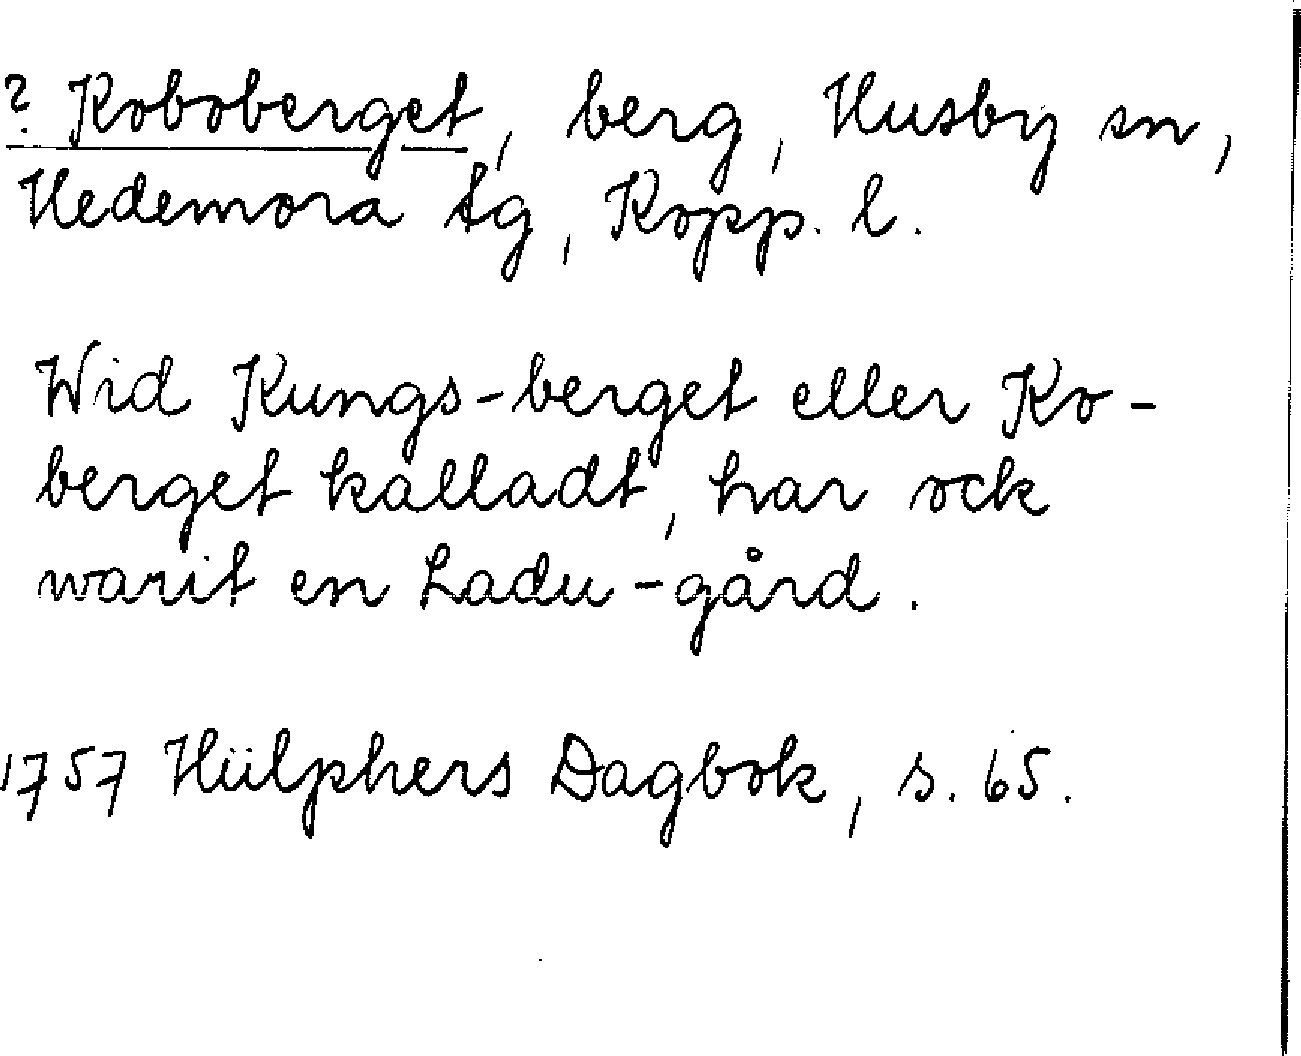 ? Koboberget, berg, Husby sn,
Hedemora tg, Kopp. l.
Wid Kungs-berget eller Ko-
berget kalladt, har ock
warit en Ladu-gård.
1757 Hülphers Dagbok, s. 65.